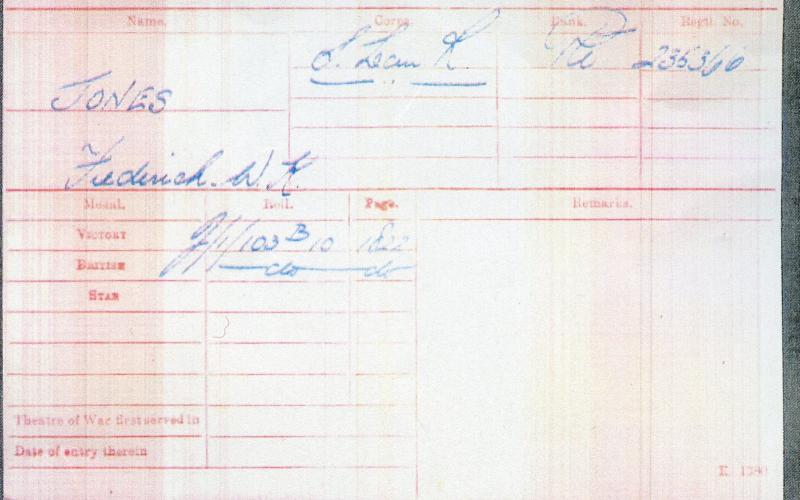 Name. Corps. Rank. Regtl. No.
S. Lan R. Pte 235366
JONES
Frederick. W. K.
Medal. Roll. Page. Remarks.
VICTORY J/1/103 B 10 1822
BRITISH do do
STAR
Theatre of War first served in
Date of entry therein
K. 1380